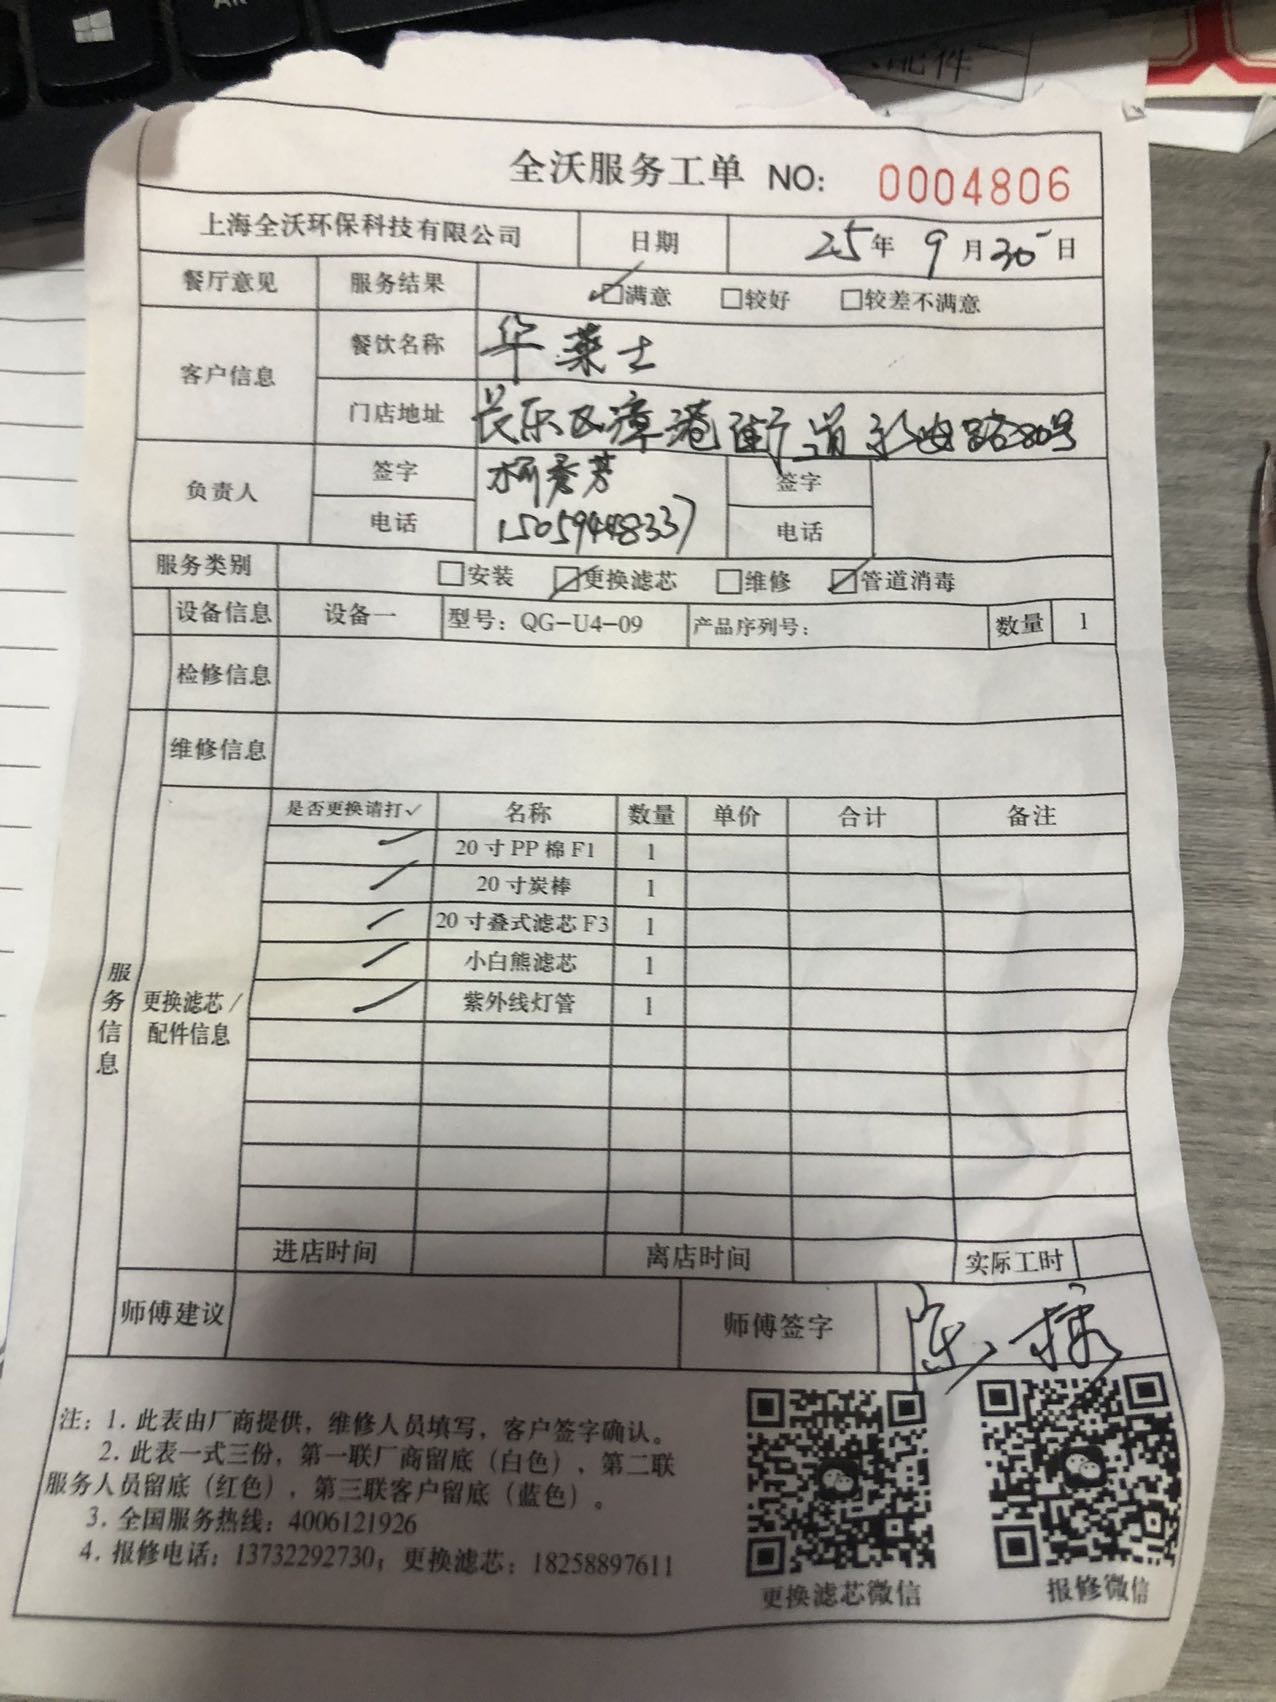 全沃服务工单 NO: 0004806
上海全沃环保科技有限公司 日期 25年 9月30日
餐厅意见 服务结果 ☑满意 □较好 □较差不满意
客户信息 餐饮名称 华莱士
门店地址 长乐区漳港街道 路280号
负责人 签字 柯秀芳 签字
电话 15059448337 电话
服务类别 □安装 ☑更换滤芯 □维修 ☑管道消毒
设备信息 设备一 型号：QG-U4-09 产品序列号： 数量 1
检修信息
维修信息
服务信息
更换滤芯/配件信息
是否更换请打✓ 名称 数量 单价 合计 备注
✓ 20寸PP棉F1 1
✓ 20寸炭棒 1
✓ 20寸叠式滤芯F3 1
✓ 小白熊滤芯 1
✓ 紫外线灯管 1
进店时间 离店时间 实际工时
师傅建议 师傅签字 陈
注：1. 此表由厂商提供，维修人员填写，客户签字确认。
2. 此表一式三份，第一联厂商留底（白色），第二联
服务人员留底（红色），第三联客户留底（蓝色）。
3. 全国服务热线：4006121926
4. 报修电话：13732292730；更换滤芯：18258897611
更换滤芯微信 报修微信